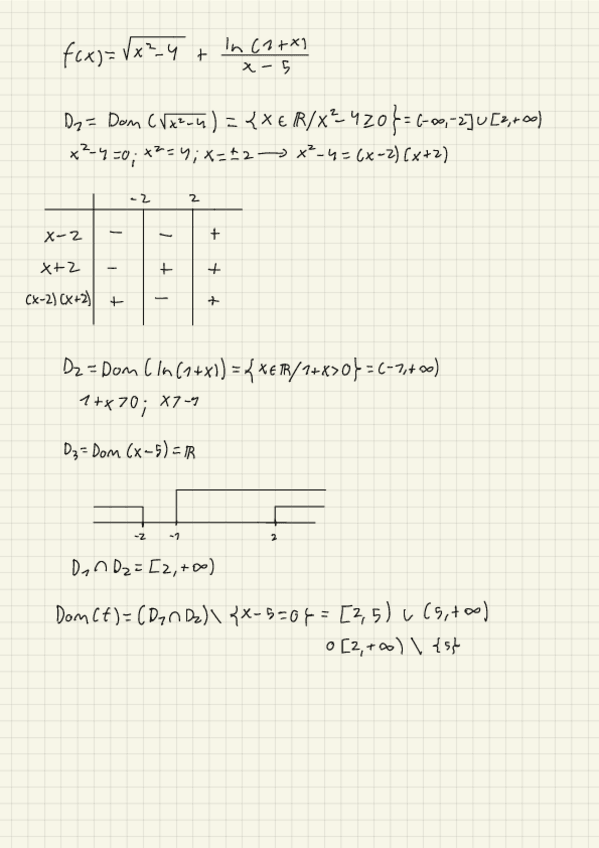 f(x)= √(x²-4) + ln(1+x)/(x-5)
D₁= Dom(√(x²-4)) = {x∈ℝ/x²-4≥0}=(-∞,-2]∪[2,+∞)
x²-4=0; x²=4; x=±2 → x²-4=(x-2)(x+2)
-2 2
x-2 - - +
x+2 - + +
(x-2)(x+2) + - +
D₂=Dom(ln(1+x))={x∈ℝ/1+x>0}=(-1,+∞)
1+x>0; x>-1
D₃=Dom(x-5)=ℝ
-2 -1 2
D₁∩D₂=[2,+∞)
Dom(f)=(D₁∩D₂)\{x-5=0}=[2,5)∪(5,+∞)
o [2,+∞)\{5}